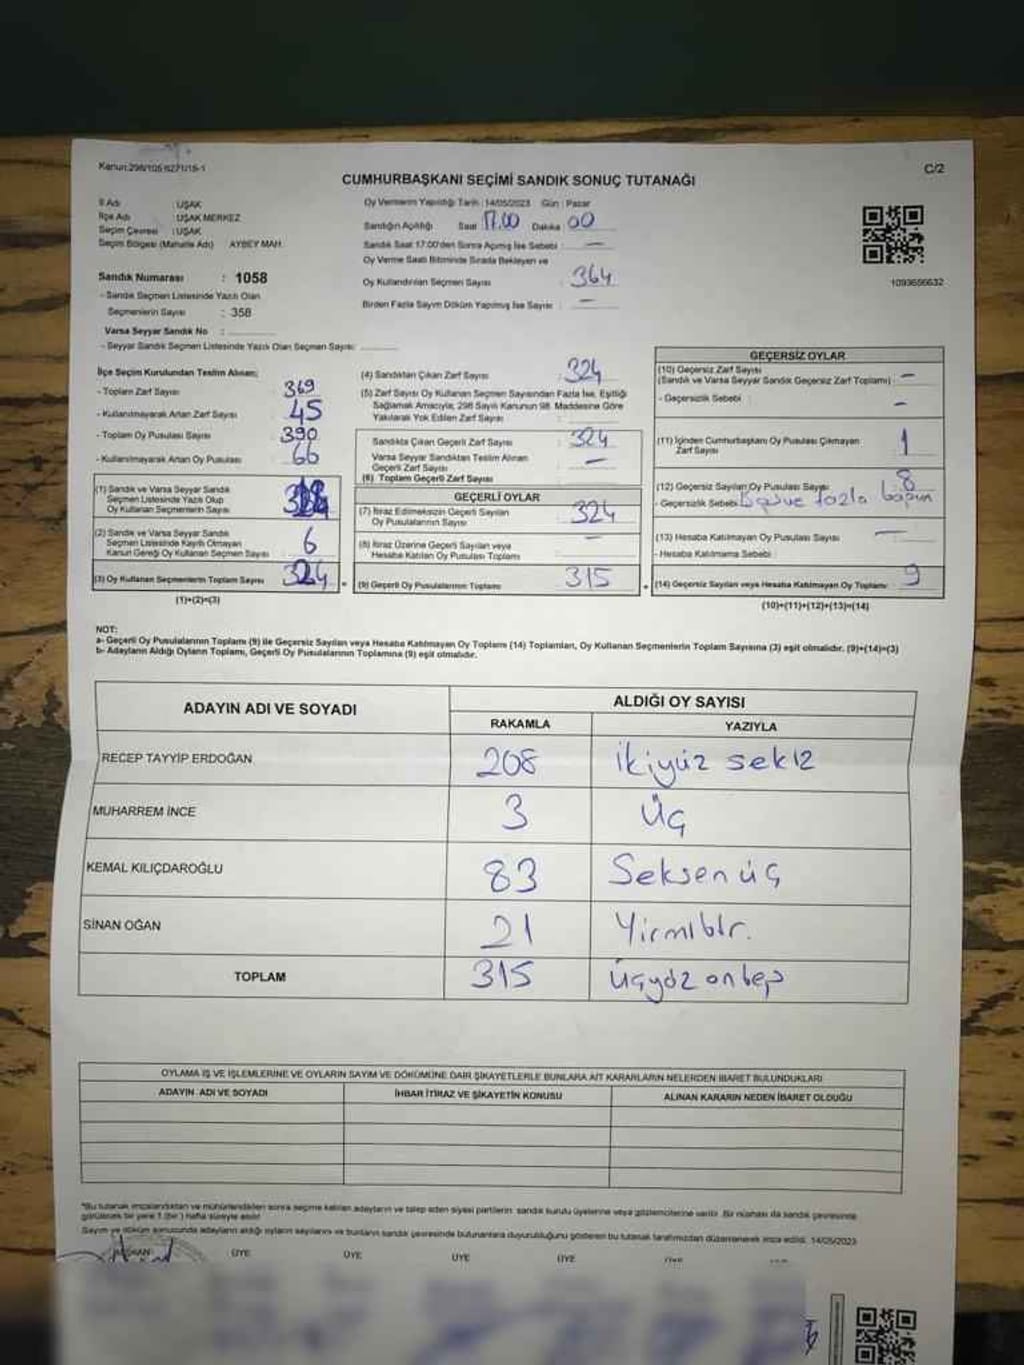 Kanun:298/105-6271/15-1
C/2
CUMHURBAŞKANI SEÇİMİ SANDIK SONUÇ TUTANAĞI
İl Adı : UŞAK
İlçe Adı : UŞAK MERKEZ
Seçim Çevresi : UŞAK
Seçim Bölgesi (Mahalle Adı) AYBEY MAH.
Sandık Numarası : 1058
- Sandık Seçmen Listesinde Yazılı Olan
Seçmenlerin Sayısı : 358
Varsa Seyyar Sandık No :
- Seyyar Sandık Seçmen Listesinde Yazılı Olan Seçmen Sayısı:
Oy Vermenin Yapıldığı Tarih : 14/05/2023 Gün : Pazar
Sandığın Açıldığı Saat 17.00 Dakika 00
Sandık Saat 17:00'den Sonra Açılmış İse Sebebi : —
Oy Verme Saati Bitiminde Sırada Bekleyen ve
Oy Kullandırılan Seçmen Sayısı : 364
Birden Fazla Sayım Döküm Yapılmış İse Sayısı : —
1093656632
İlçe Seçim Kurulundan Teslim Alınan;
- Toplam Zarf Sayısı : 369
- Kullanılmayarak Artan Zarf Sayısı : 45
- Toplam Oy Pusulası Sayısı : 390
- Kullanılmayarak Artan Oy Pusulası : 66
(1) Sandık ve Varsa Seyyar Sandık
Seçmen Listesinde Yazılı Olup
Oy Kullanan Seçmenlerin Sayısı
(2) Sandık ve Varsa Seyyar Sandık
Seçmen Listesinde Kayıtlı Olmayan
Kanun Gereği Oy Kullanan Seçmen Sayısı 6
(3) Oy Kullanan Seçmenlerin Toplam Sayısı 324
(1)+(2)=(3)
(4) Sandıktan Çıkan Zarf Sayısı : 324
(5) Zarf Sayısı Oy Kullanan Seçmen Sayısından Fazla İse, Eşitliği
Sağlamak Amacıyla, 298 Sayılı Kanunun 98. Maddesine Göre
Yakılarak Yok Edilen Zarf Sayısı :
Sandıkta Çıkan Geçerli Zarf Sayısı : 324
Varsa Seyyar Sandıktan Teslim Alınan
Geçerli Zarf Sayısı : —
(6) Toplam Geçerli Zarf Sayısı :
GEÇERLİ OYLAR
(7) İtiraz Edilmeksizin Geçerli Sayılan
Oy Pusulalarının Sayısı : 324
(8) İtiraz Üzerine Geçerli Sayılan veya
Hesaba Katılan Oy Pusulası Toplamı : —
(9) Geçerli Oy Pusulalarının Toplamı : 315
GEÇERSİZ OYLAR
(10) Geçersiz Zarf Sayısı
(Sandık ve Varsa Seyyar Sandık Geçersiz Zarf Toplamı) : —
- Geçersizlik Sebebi : —
(11) İçinden Cumhurbaşkanı Oy Pusulası Çıkmayan
Zarf Sayısı : 1
(12) Geçersiz Sayılan Oy Pusulası Sayısı : 8
- Geçersizlik Sebebi ve fazla
(13) Hesaba Katılmayan Oy Pusulası Sayısı : —
- Hesaba Katılmama Sebebi :
(14) Geçersiz Sayılan veya Hesaba Katılmayan Oy Toplamı : 9
(10)+(11)+(12)+(13)=(14)
NOT:
a- Geçerli Oy Pusulalarının Toplamı (9) ile Geçersiz Sayılan veya Hesaba Katılmayan Oy Toplamı (14) Toplamları, Oy Kullanan Seçmenlerin Toplam Sayısına (3) eşit olmalıdır. (9)+(14)=(3)
b- Adayların Aldığı Oyların Toplamı, Geçerli Oy Pusulalarının Toplamına (9) eşit olmalıdır.
ADAYIN ADI VE SOYADI
ALDIĞI OY SAYISI
RAKAMLA YAZIYLA
RECEP TAYYİP ERDOĞAN 208 ikiyüz sekiz
MUHARREM İNCE 3 Üç
KEMAL KILIÇDAROĞLU 83 Seksen üç
SİNAN OĞAN 21 Yirmibir.
TOPLAM 315 üçyüz onbeş
OYLAMA İŞ VE İŞLEMLERİNE VE OYLARIN SAYIM VE DÖKÜMÜNE DAİR ŞİKAYETLERLE BUNLARA AİT KARARLARIN NELERDEN İBARET BULUNDUKLARI
ADAYIN ADI VE SOYADI İHBAR İTİRAZ VE ŞİKAYETİN KONUSU ALINAN KARARIN NEDEN İBARET OLDUĞU
*Bu tutanak imzalandıktan ve mühürlendikten sonra seçime katılan adayların ve talep eden siyasi partilerin sandık kurulu üyelerine veya gözlemcilerine verilir. Bir nüshası da sandık çevresinde
görülecek bir yere 1 (bir) hafta süreyle asılır.
Sayım ve döküm sonucunda adayların aldığı oyların sayılarını ve bunların sandık çevresinde bulunanlara duyurulduğunu gösteren bu tutanak tarafımızdan düzenlenerek imza edildi. 14/05/2023
ÜYE ÜYE ÜYE ÜYE